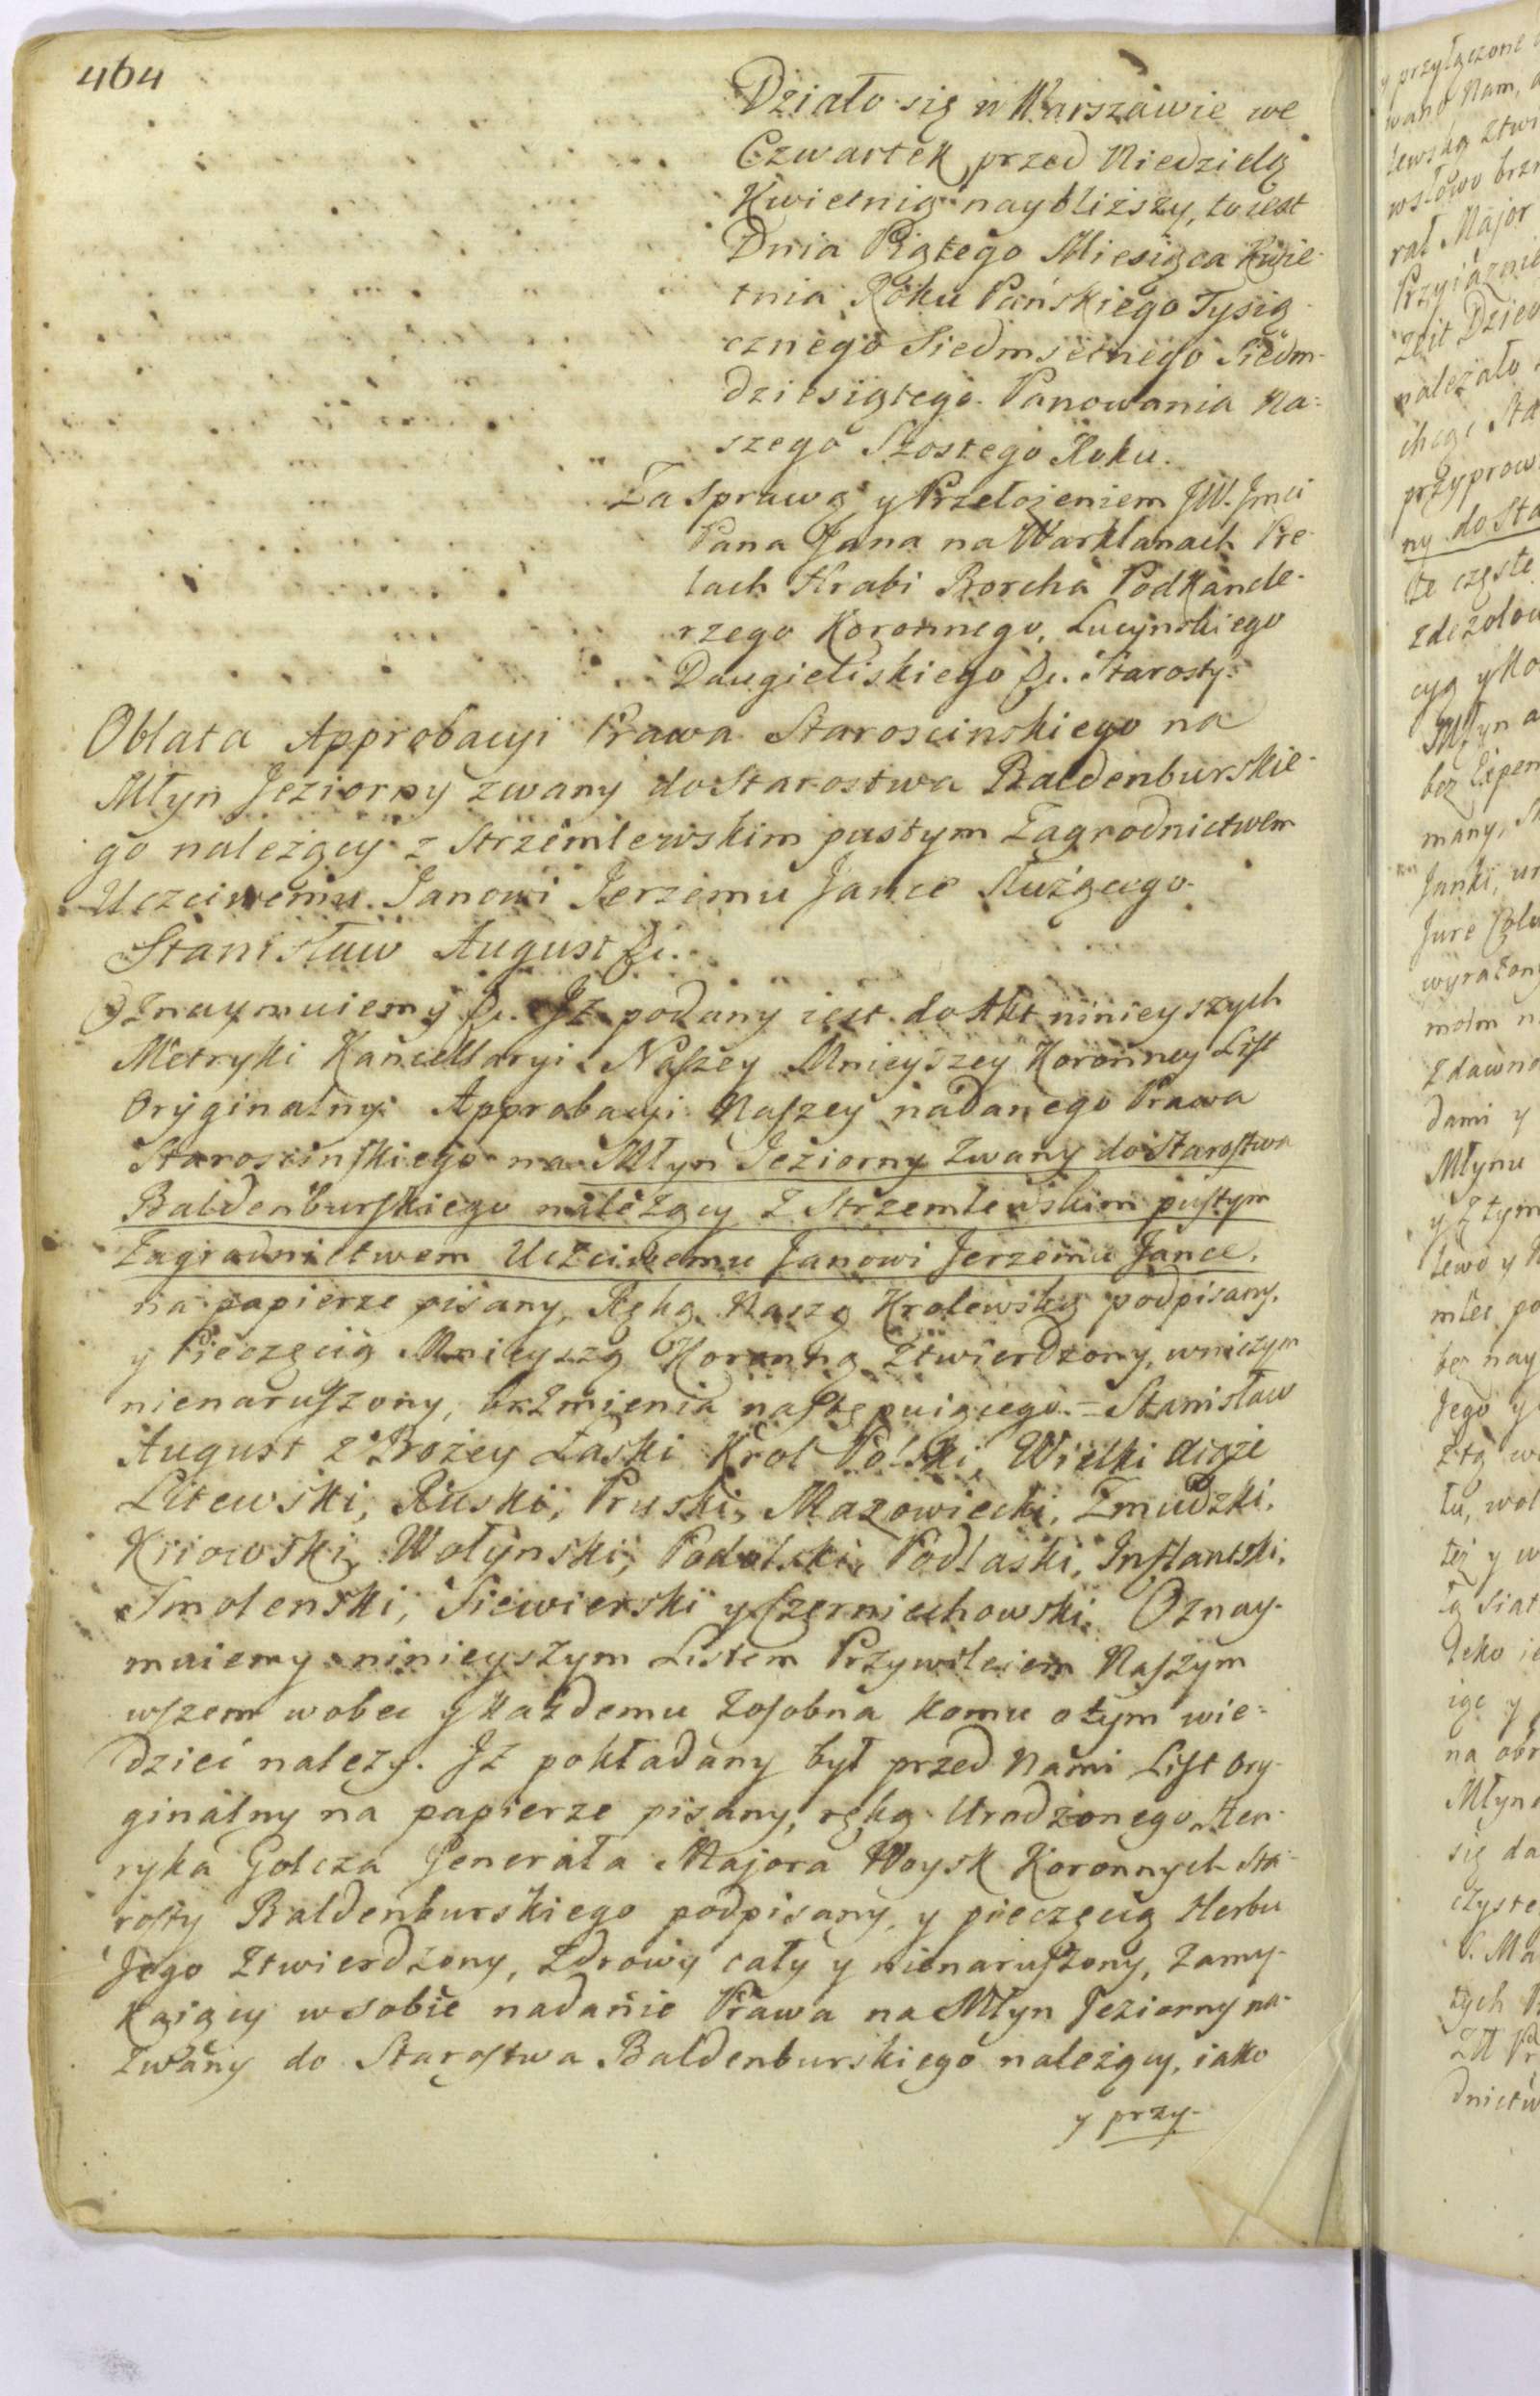 464
Działo się w Warszawie we
Czwartek przed Niedzielą
Kwietnią naybliższy, to iest
Dnia Piątego Miesiąca Kwie-
tnia Roku Pańskiego Tysią-
cznego Siedmsetnego Siedm-
dziesiątego. Panowania Na=
szego Szostego Roku.
Za Sprawą y Przełożeniem JW. Jmci
Pana Jana na Warklanach Pre-
lach Hrabi Borcha Podkancle-
rzego Koronnego, Lucynskiego
Daugieliskiego &c. Starosty.
Oblata Approbacyi Prawa Staroscinskiego na
Młyn Jeziorny zwany do Starostwa Baldenburskie-
go należący z Strzemlewskim pustym Zagrodnictwem
Uczciwemu Janowi Jerzemu Jance służącego.
Stanisław August &c.
Oznaymuiemy &c. Iż podany iest do Akt ninieyszych
Metryki Kancellaryi Naszey Mnieyszey Koronney List
Oryginalny Approbacyi Naszey nadanego Prawa
Staroscinskiego na Młyn Jeziorny Zwany do Starostwa
Baldenburskiego należący z Strzemlewskim pustym
Zagrodnictwem Uczciwemu Janowi Jerzemu Jance,
na papierze pisany, Ręką Naszą Krolewską podpisany,
y Pieczęcią Mnieyszą Koronną ztwierdzony, wniczym
nienaruszony, brzmienia następuiącego = Stanisław
August z Bożey Łaski Krol Polski, Wielki Xiąże
Litewski, Ruski, Pruski, Mazowiecki, Zmudzki,
Kiiowski, Wołynski, Podolski, Podlaski, Inflantski,
Smolenski, Siewierski y Czerniechowski. Oznay-
muiemy ninieyszym Listem Przywileiem Naszym
wszem wobec y każdemu zosobna komu otym wie=
dzieć należy. Iż pokładany był przed Nami List Ory-
ginalny na papierze pisany, ręką Urodzonego Hen-
ryka Golcza Generała Majora Woysk Koronnych Sta-
rosty Baldenburskiego podpisany, y pieczęcią Herbu
Jego ztwierdzony, zdrowy cały y nienaruszony, zamy-
kaiący wsobie nadanie Prawa na Młyn Jeziorny na-
zwany do Starostwa Baldenburskiego należący, iako
y przy-